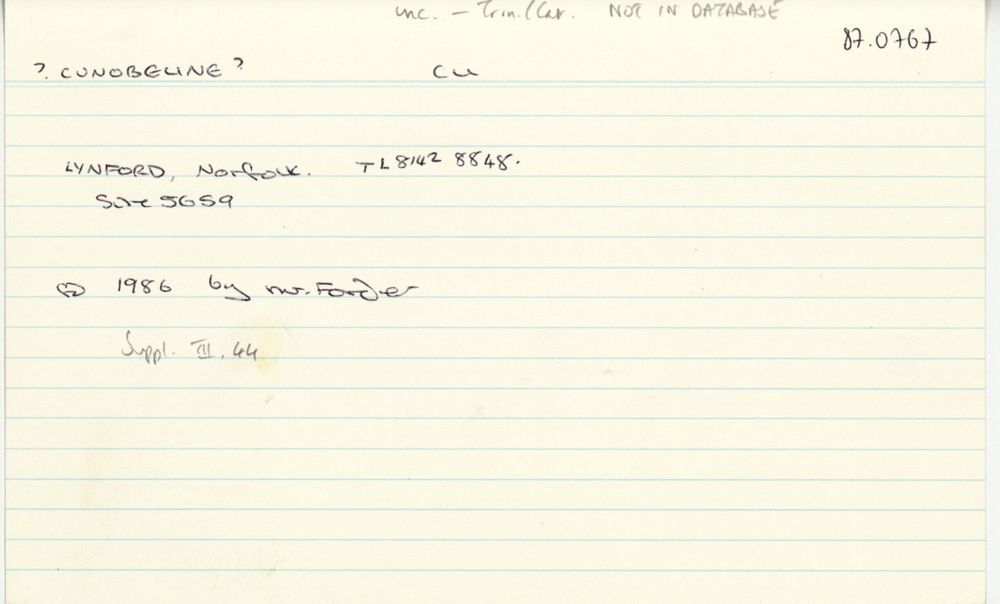 unc. – Trin./Cat. NOT IN DATABASE
87.0767
? CUNOBELINE? CU
LYNFORD, Norfolk. TL 8142 8848.
Site 5659
1986 by mr. Forder
Suppl. III. 44